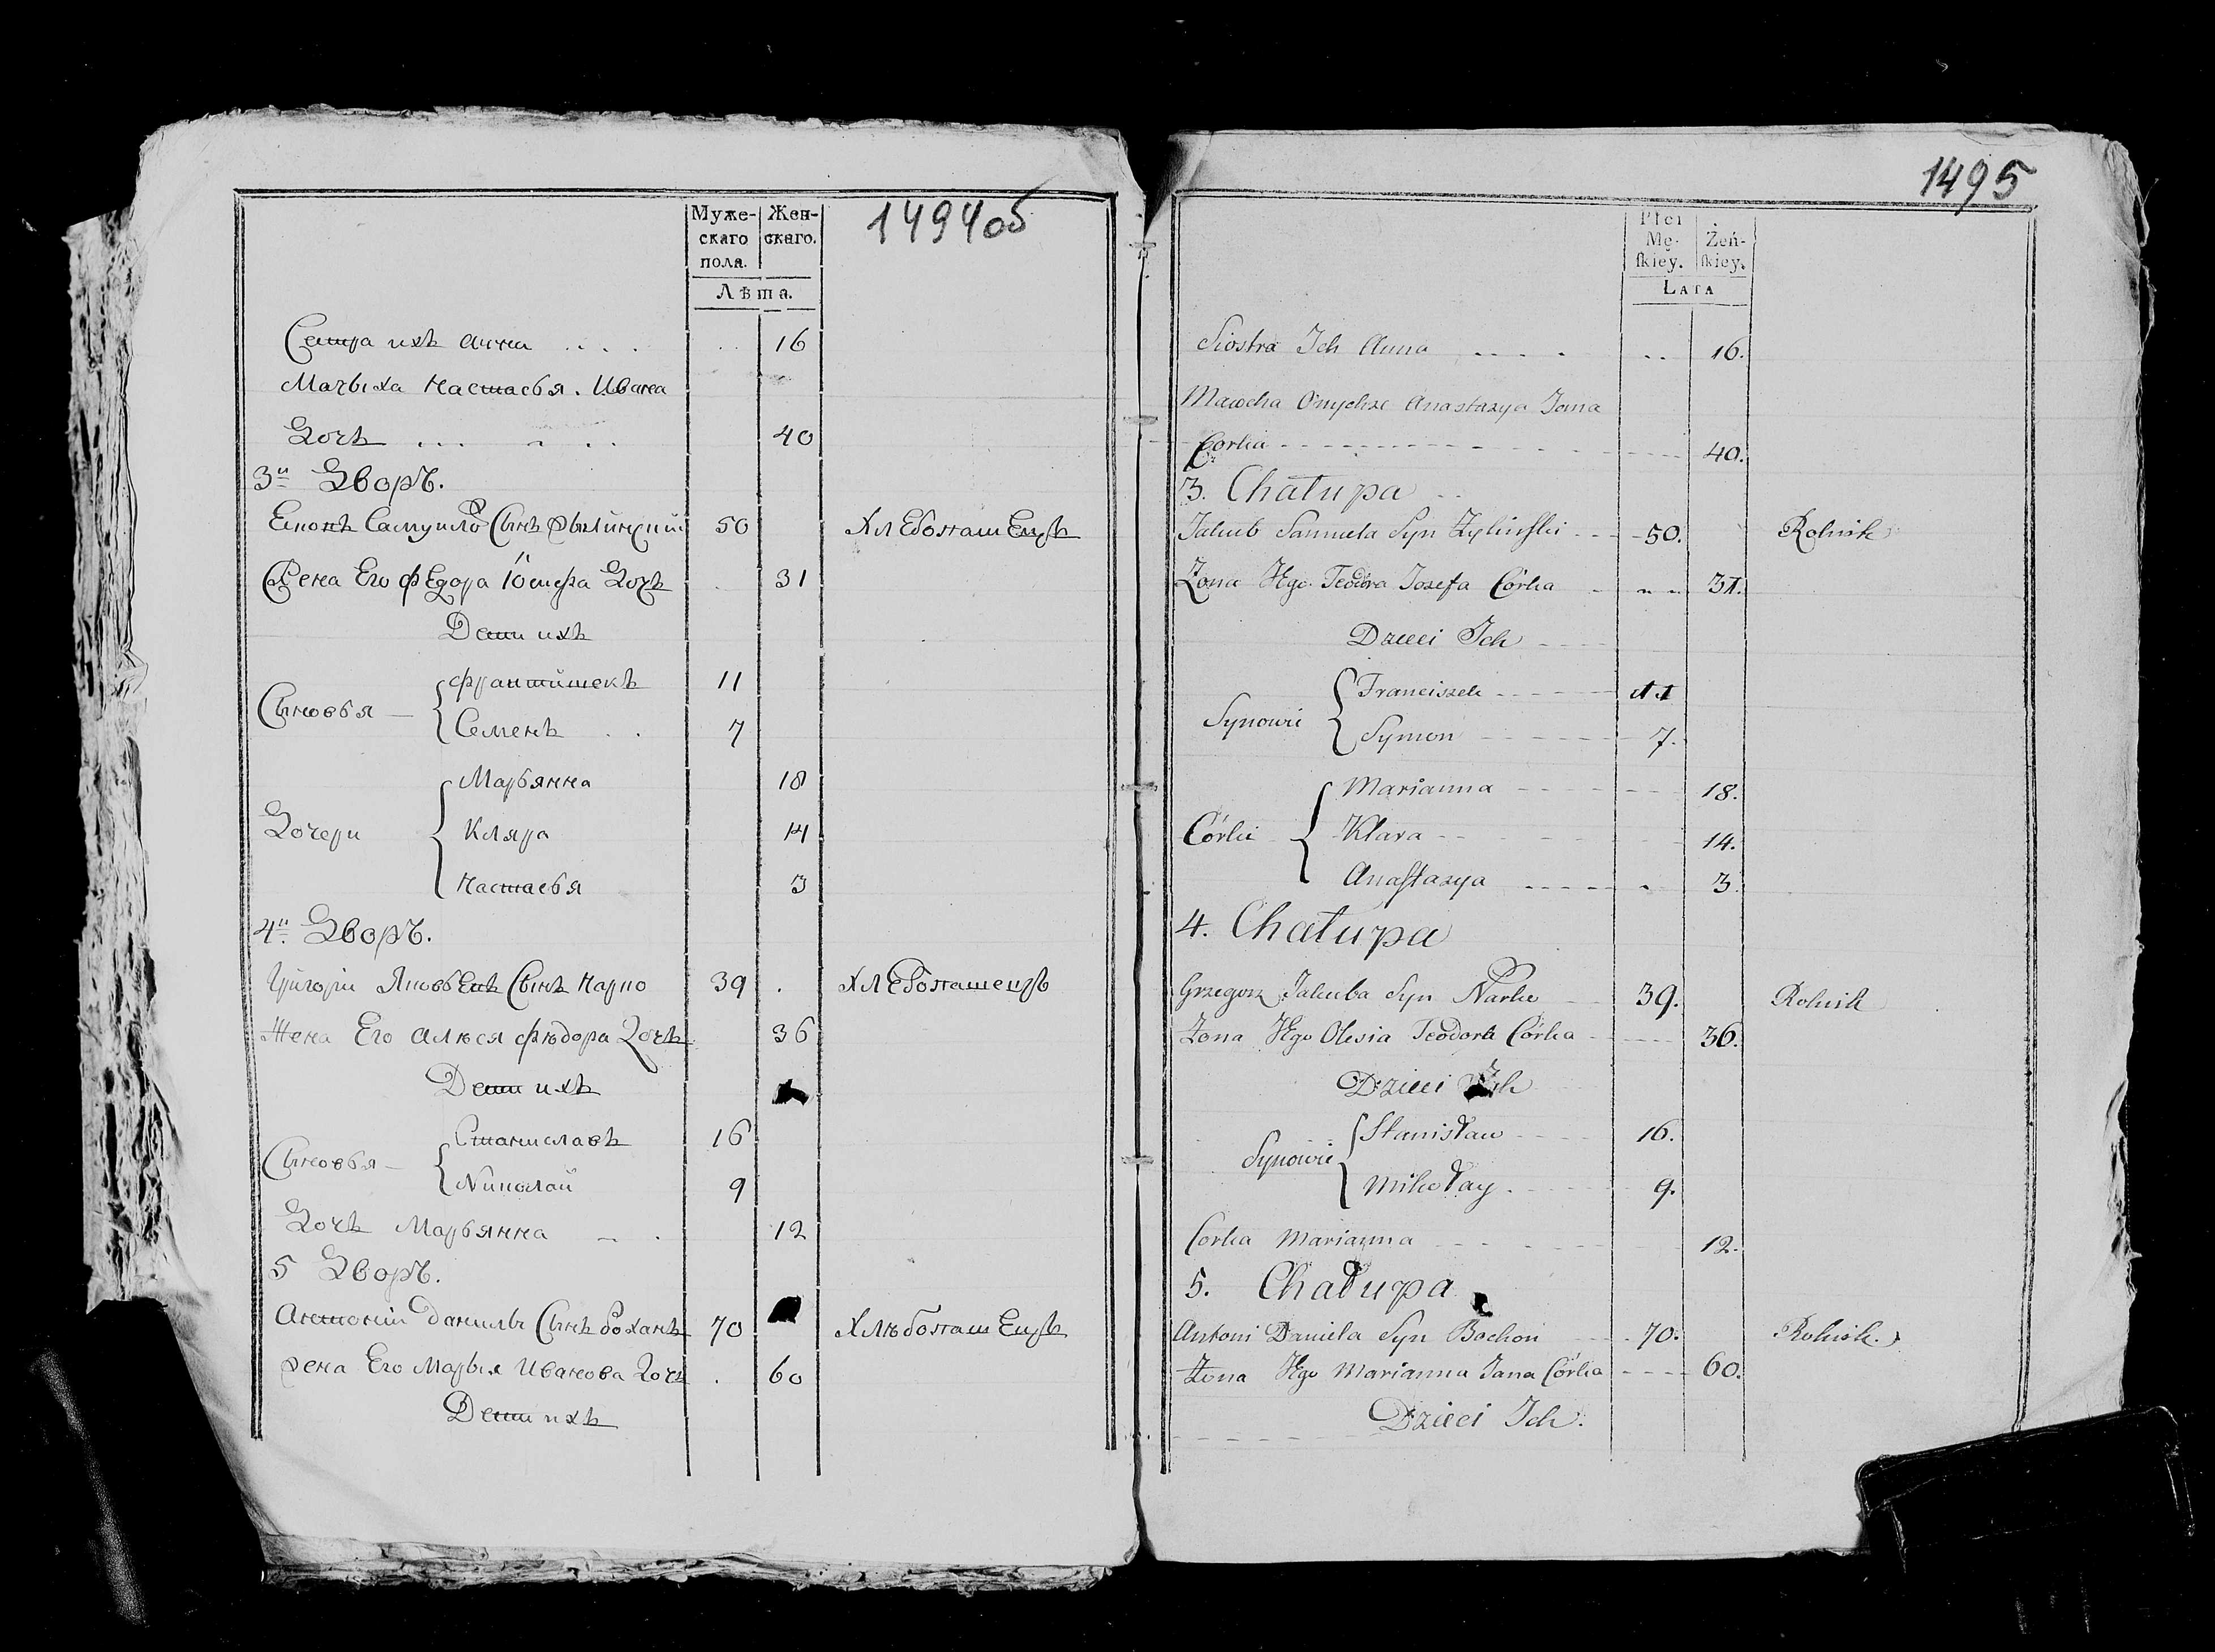 1494об
Муже-
скаго
пола.
Жен-
скаго.
Лѣта.
Сестра ихъ анна . . . . 16
Мачыха настасья . Ивана
Дочъ . . . 40
3й Дворъ.
Самуила Сынъ 50 Хлебопашецъ
Жена Его фЕдора Іосифа Дочъ 31
Дети ихъ
Сыновья — франтишекъ 11
Семенъ . . 7
Дочери Марьянна 18
Кляра 14
настасья 3
4й Дворъ.
Григори Яковь Сынъ Нарко 39 . ХлЕбопашецъ
Жена Его алюся фѣдора Дочъ 36
Дети ихъ
Сыновья — Станиславъ 16
Николай 9
Дочъ Марьянна 12
5 Дворъ.
Антоній данила Сынъ боханъ 70 ХлѣбопашЕцъ
Жена Его Марыя Иванова Доч . 60
Дети ихъ
1495
Płci
Mę-
ſkiey.
Żeń-
ſkiey.
Lata
Siostra Ich Anna . . . . 16.
Macocha Onychże Anastazya Jana
Corka 40.
3. Chałupa
Jakub Samuela Syn Zylinſki 50. Rolnik
Zona Jego Teodora Jozefa Córka 31.
Dzieci Ich
Synowie Franciszek 11
Symon 7.
Córki Marianna 18.
Klara 14.
Anaſtazya 3.
4. Chałupa
Grzegorz Jakuba Syn Narko 39. Rolnik
Zona Jego Olesia Teodora Córka 36.
Dzieci Ich
Synowie Stanisław 16.
Mikołay . 9.
Corka Marianna 12.
5. Chałupa
Antoni Daniela Syn Bochon 70. Rolnik.
Zona Jego Marianna Jana Córka 60.
Dzieci Ich.